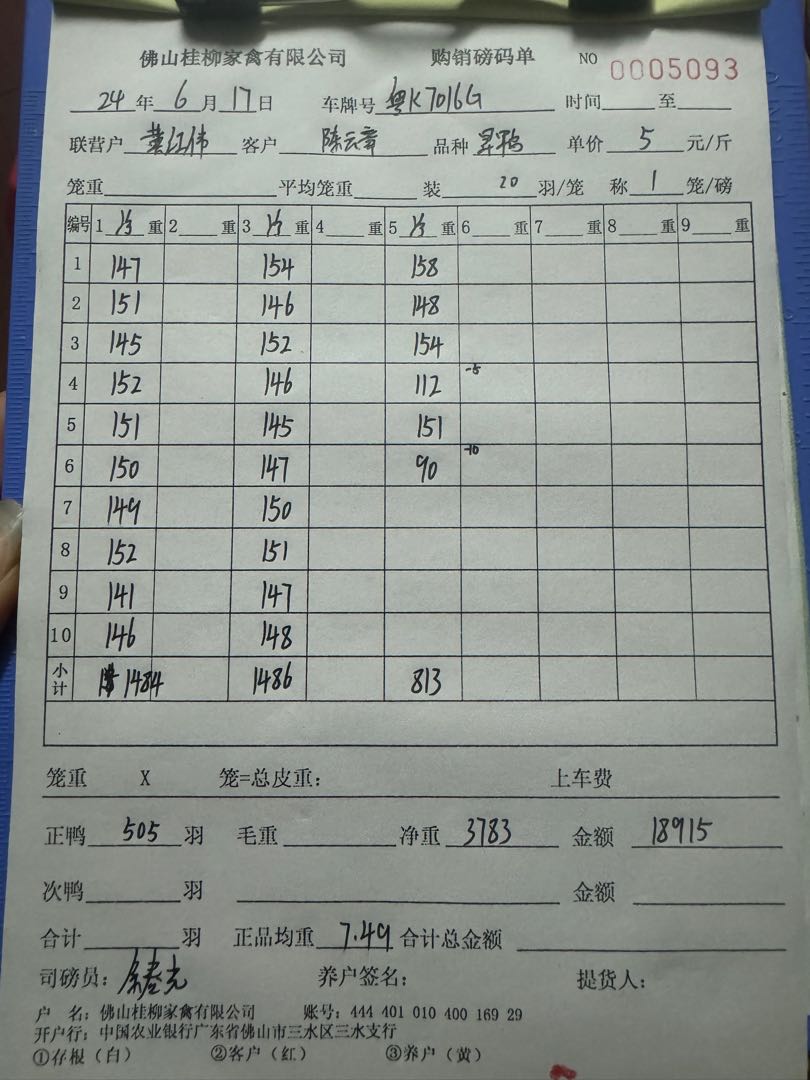 佛山桂柳家禽有限公司 购销磅码单 NO 0005093
24 年 6 月 17 日 车牌号 粤K7016G 时间 至
联营户 客户 陈云章 品种 单价 5 元/斤
笼重 平均笼重 装 20 羽/笼 称 1 笼/磅
编号 1 重 2 重 3 重 4 重 5 重 6 重 7 重 8 重 9 重
1 147 154 158
2 151 146 148
3 145 152 154
4 152 146 112 -5
5 151 145 151
6 150 147 90 -10
7 149 150
8 152 151
9 141 147
10 146 148
小计 1484 1486 813
笼重 X 笼=总皮重: 上车费
正鸭 505 羽 毛重 净重 3783 金额 18915
次鸭 羽 金额
合计 羽 正品均重 7.49 合计总金额
司磅员: 养户签名: 提货人:
户 名: 佛山桂柳家禽有限公司 账号: 444 401 010 400 169 29
开户行: 中国农业银行广东省佛山市三水区三水支行
①存根(白) ②客户(红) ③养户(黄)